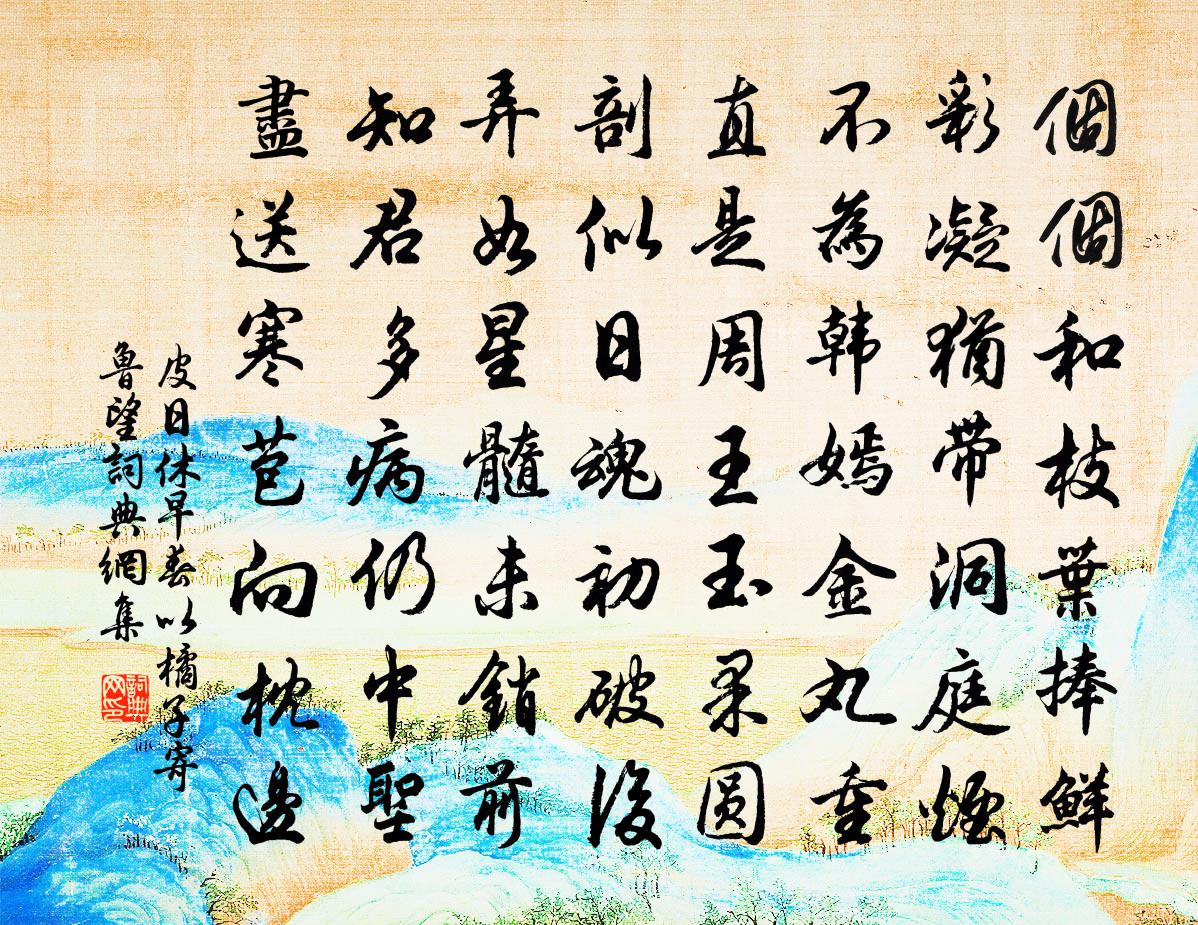 個個和枝葉捧鮮
彩凝猶帶洞庭煙
不為韩嫣金丸重
直是周王玉果圆
剖似日魂初破後
弄如星髓未銷前
知君多病仍中聖
盡送寒苞向枕邊
皮日休早春以橘子寄
魯望詞典網集
詞典
网印